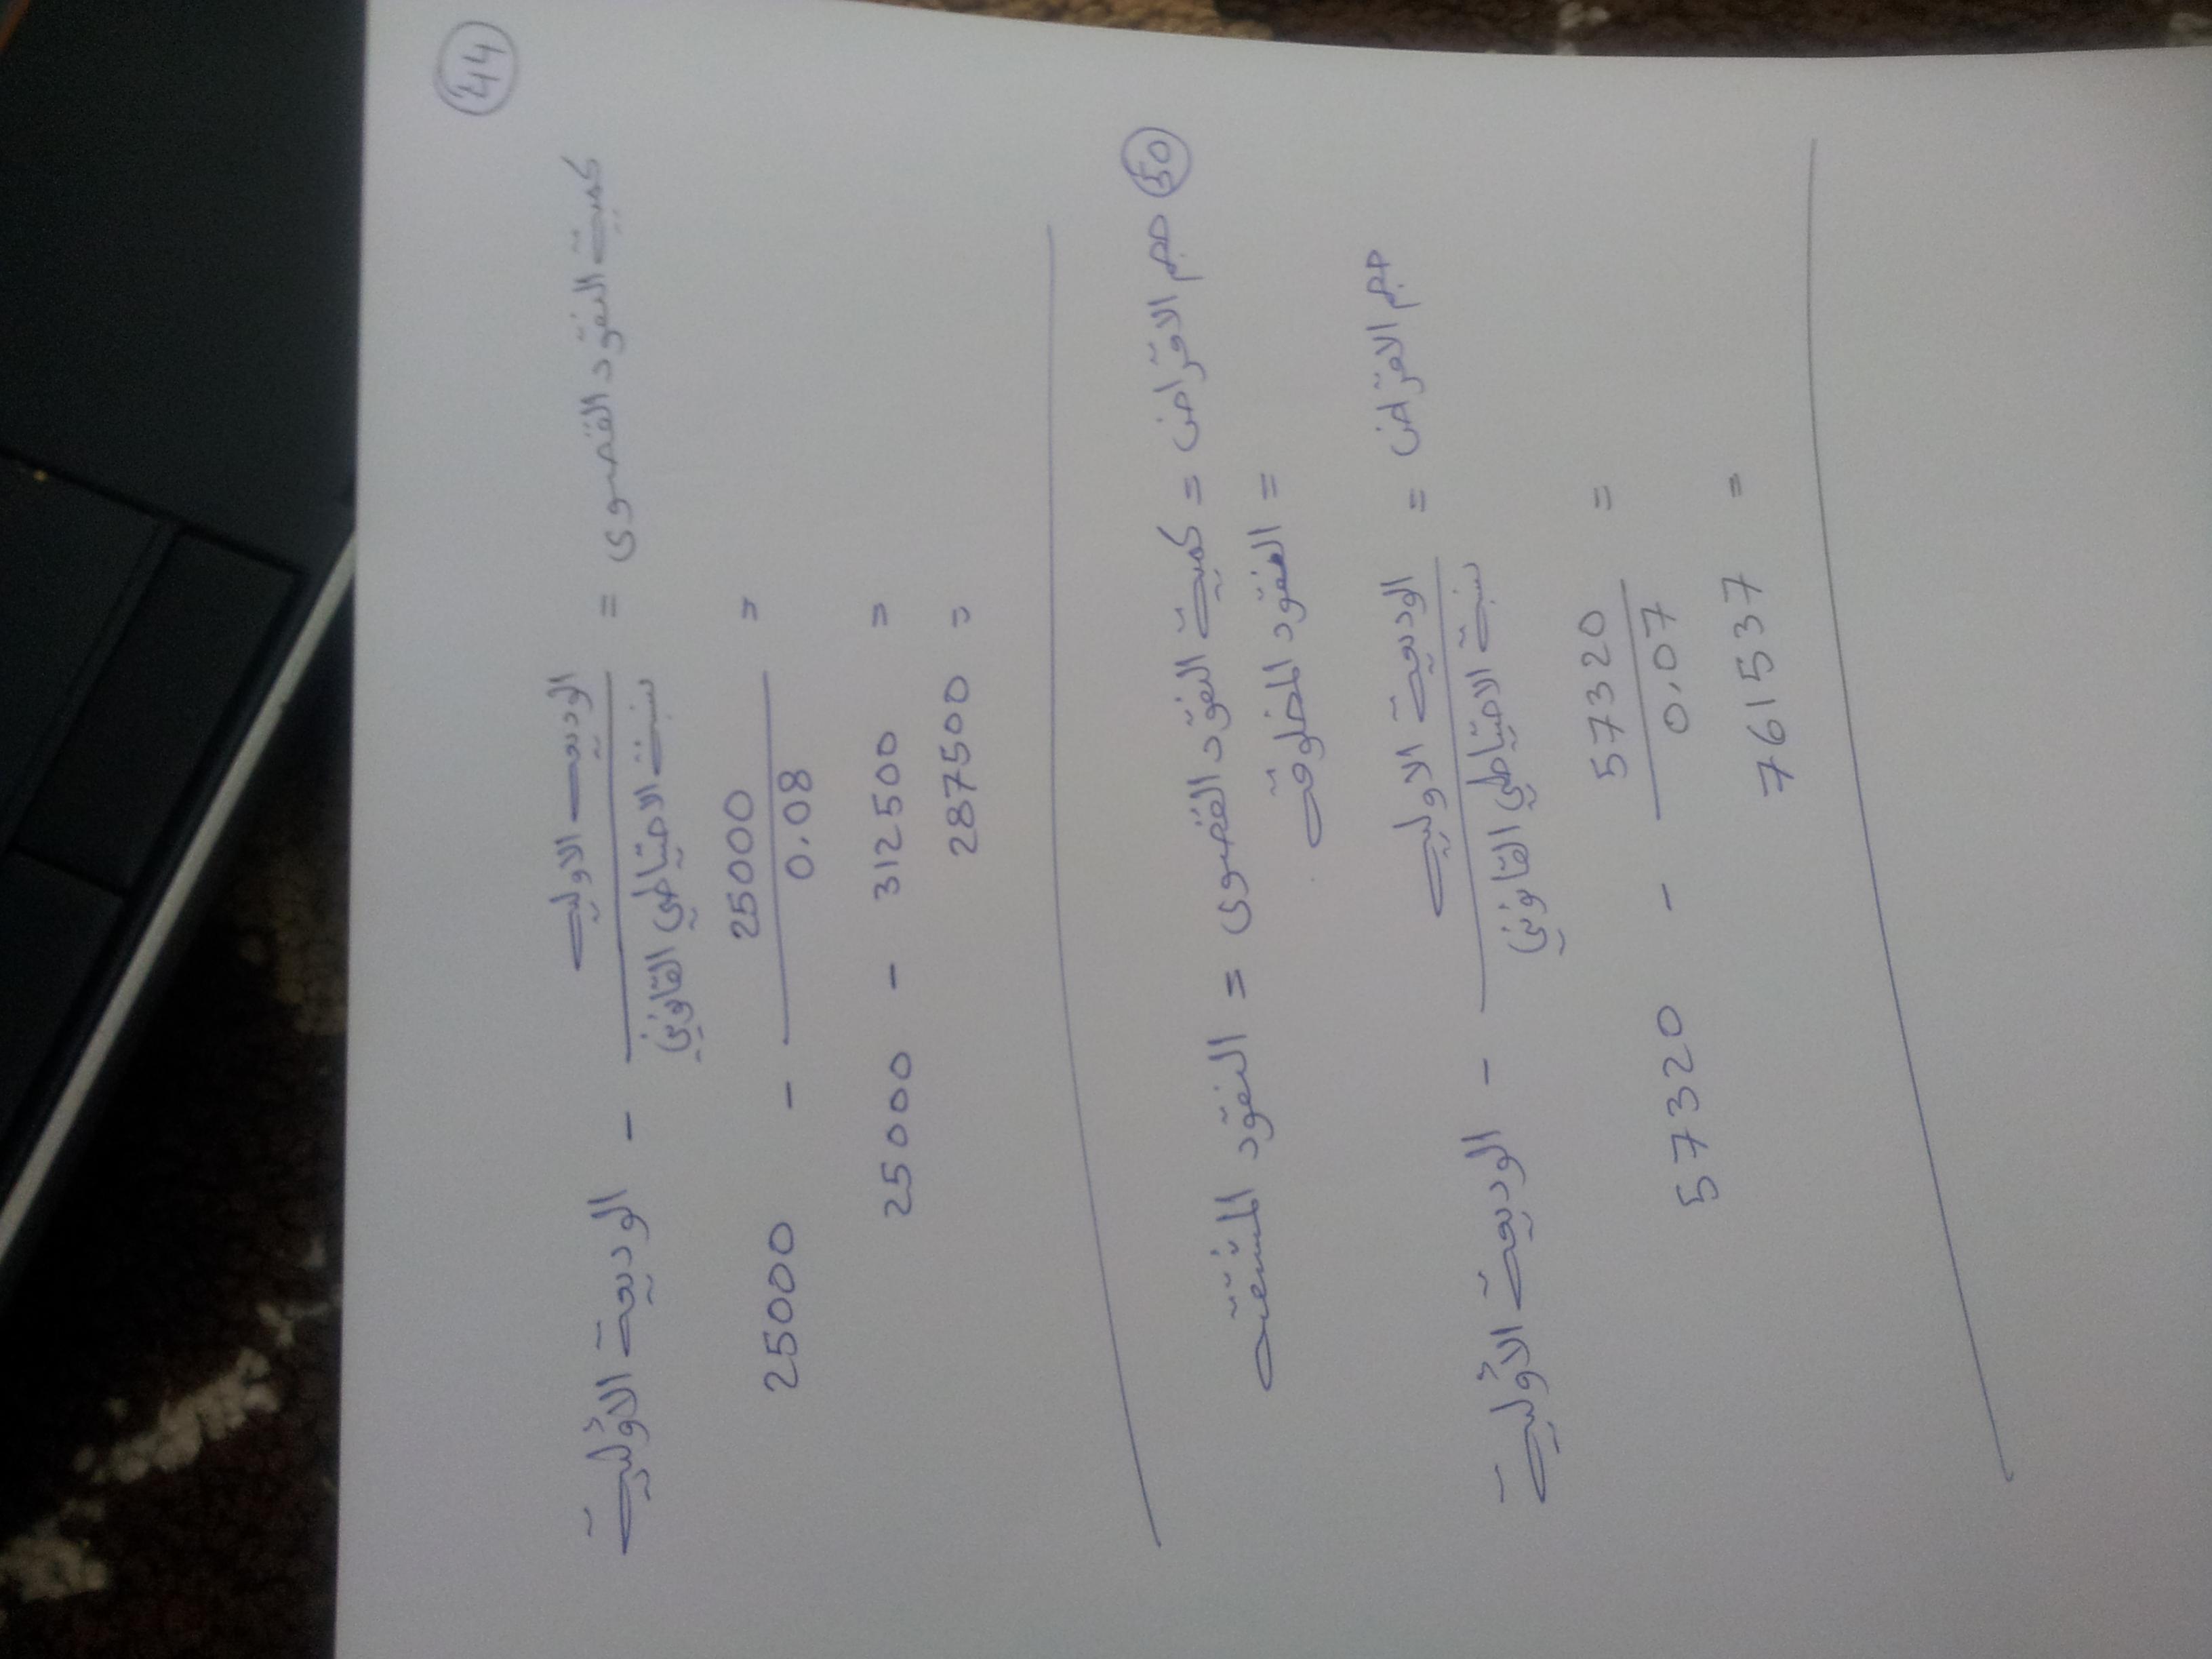 44
كمية النقود القصوى = الوديعة الاولية / نسبة الاحتياطي القانوني - الوديعة الأولية
= 25000 / 0.08 - 25000
= 312500 - 25000
= 287500
50 حجم الاقراض = كمية النقود القصوى = النقود المشتقة
= النقود المخلوقة
حجم الاقراض = الوديعة الاولية / نسبة الاحتياطي القانوني - الوديعة الأولية
= 57320 / 0.07 - 57320
= 761537